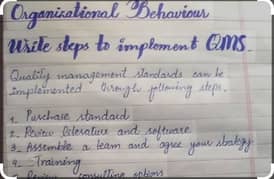 Organizational Behaviour
Write steps to implement QMS.
Quality management standards can be
implemented through following steps.
1. Purchase standard
2. Review literature and software
3. Assemble a team and agree your strategy
4. Training
consulting options